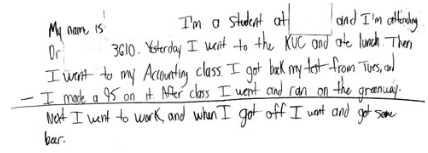 My name is I'm a student at and I'm attending
Dr 3610. Yesterday I went to the KUC and ate lunch. Then
I went to my Accounting class. I got back my test from Tues, and
– I made a 95 on it. After class I went and ran on the greenway.
Next I went to work, and when I got off I went and got some
beer.